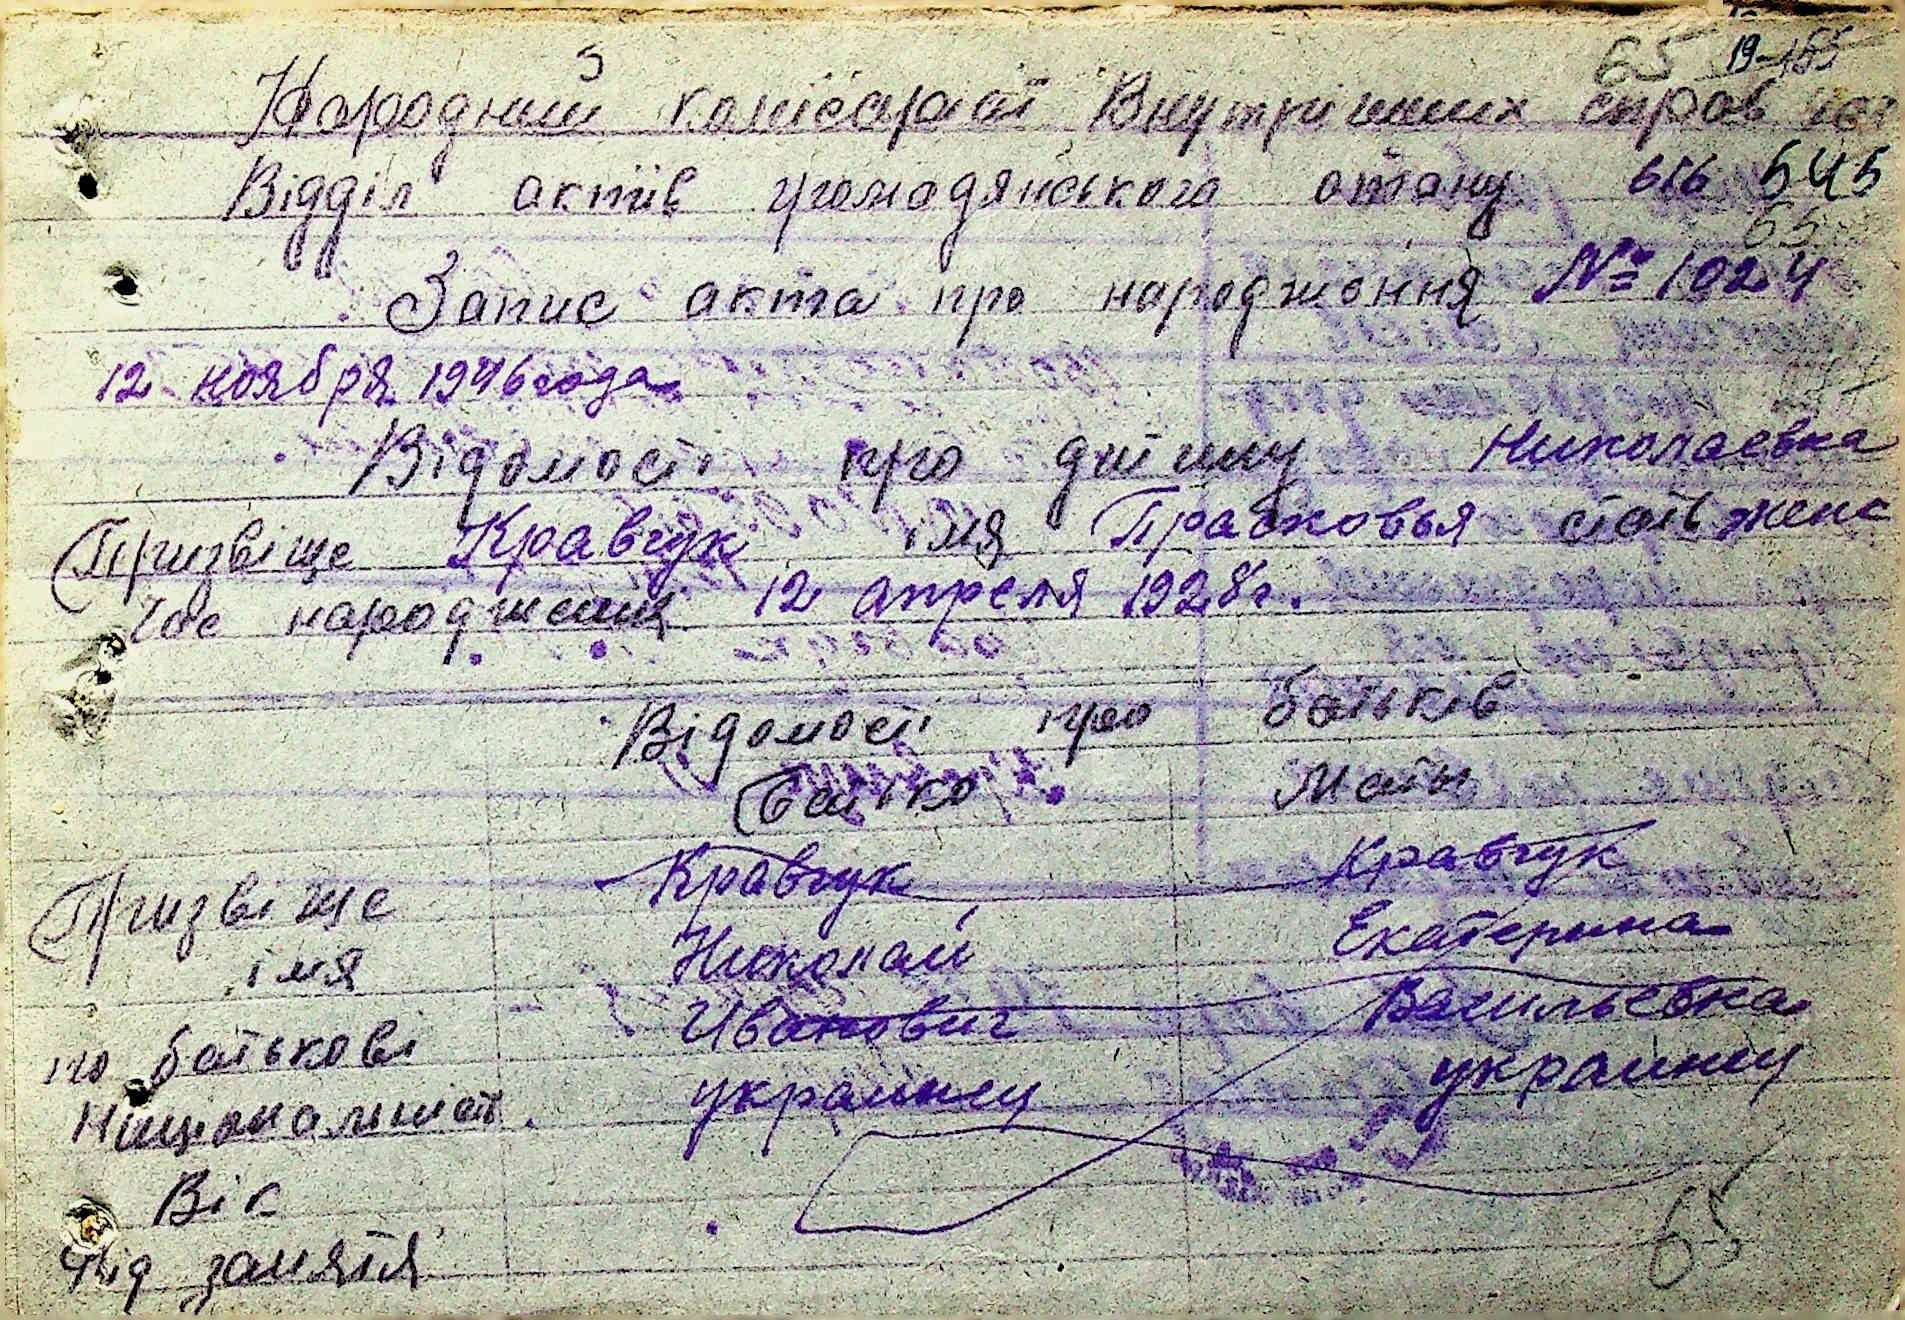 65 19-155
Народний комісаріат Внутрішних справ
Відділ актів громадянського стану 616 545
65
Запис акта про народження № 1024
12 ноября 1946 года
Відомості про дитину Николаевка
Призвіще Кравчук імя Прасковья стать женс
Час народження 12 апреля 1928 г.
Відомості про батьків
Батько Мати
Призвіще Кравчук Кравчук
імя Николай Екатерина
по батькові Иванович Васильевна
Національність украинец украинец
Вік
Рід заняття
65